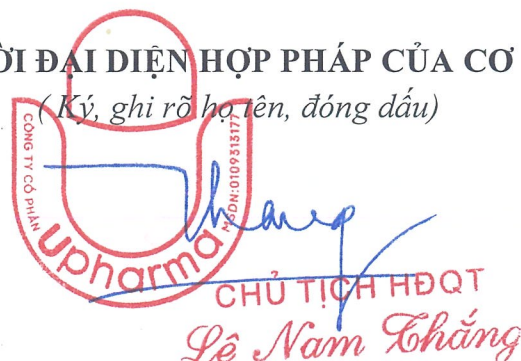 ỜI ĐẠI DIỆN HỢP PHÁP CỦA CƠ
( Ký, ghi rõ họ tên, đóng dấu)
CÔNG TY CỔ PHẦN
Upharma
MSDN:0109313177
Thang
CHỦ TỊCH HĐQT
Lê Nam Thắng